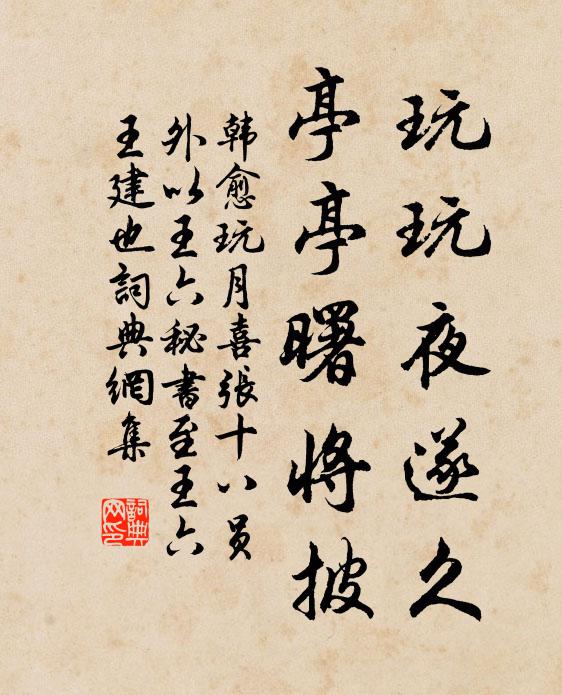 玩玩夜遂久
亭亭曙將披
韩愈玩月喜張十八员
外以王六秘書至王六
王建也詞典網集
詞典
网印